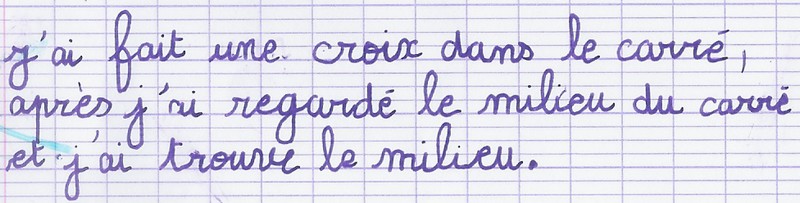 j'ai fait une croix dans le carré,
après j'ai regardé le milieu du carré
et j'ai trouve le milieu.